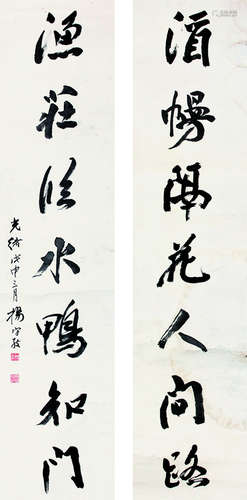 酒幔隔花人問路
漁莊臨水鴨知門
光緒戊申三月楊守敬